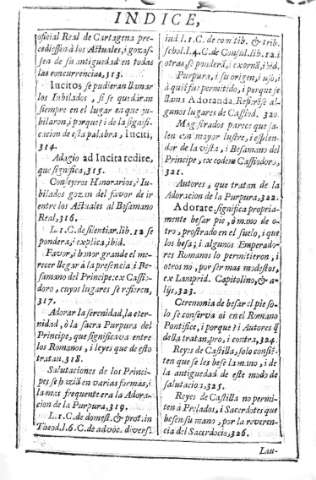 INDICE,
oficial Real de Cartagena pre-
cediessen à los Actuales, i gozas-
sen de su antiguedad en todas
las concurrencias, 313.
Incitos se pudieran llamar
los Iubilados, si se quedaran
siempre en el lugar en que ju-
bilaron, i porque? i de la signifi-
cacion de esta palabra, Inciti,
314.
Adagio ad Incita redire,
que significa, 315.
Consejeros Honorarios, i Iu-
bilados gozan del favor de ir
entre los Actuales al Besamano
Real, 316.
L. 1. C. de silentiar. lib. 12 se
pondera, i explica, ibid.
Favor, i honor grande el me-
recer llegar à la presencia, i Be-
samano del Principe: ex Cassio-
doro, cuyos lugares se refieren,
317.
Adorar la serenidad, la eter-
nidad, ò la sacra Purpura del
Principe, que significava entre
los Romanos, i leyes que de esto
tratan. 318.
Salutaciones de los Princi-
pes se hazen en varias formas, i
la mas frequente era la Adora-
cion de la Purpura, 319.
L. 1. C. de domest. & prot. in
Theod. l. 6. C. de advoc. divers.
iud. l. 1. C. de com. lib. & trib.
schol. l. 4. C. de Consul. lib. 12. i
otras, se ponderan, i exornan, ibid.
Purpura, i su origen, i uso, i
à quien fue permitido, i porque se
llama Adoranda. Refierense al-
gunos lugares de Cassiod. 320.
Magistrados parece que sa-
len con mayor lustre, i esplen-
dor de la vista, i Besamano del
Principe, ex eodem Cassiodoro,
321.
Autores, que tratan de la
Adoracion de la Purpura, 322.
Adorate, significa propria-
mente besar pie, ò mano de o-
tro, prostrado en el suelo, i que
los besa; i algunos Emperado-
res Romanos lo permitieron, i
otros no, por ser mas modestos,
ex Lamprid. Capitolino, & a-
lijs, 323.
Ceremonia de besar el pie so-
lo se conserva oi en el Romano
Pontifice, i porque? i Autores que
della tratan, pro, i contra, 324.
Reyes de Castilla, solo consie-
ten que se les bese la mano, i de
la antiguedad de este modo de
salutacion. 325.
Reyes de Castilla no permi-
ten à Prelados, i Sacerdotes que
besen su mano, por la reverencia
del Sacerdocio, 326.
Lau-